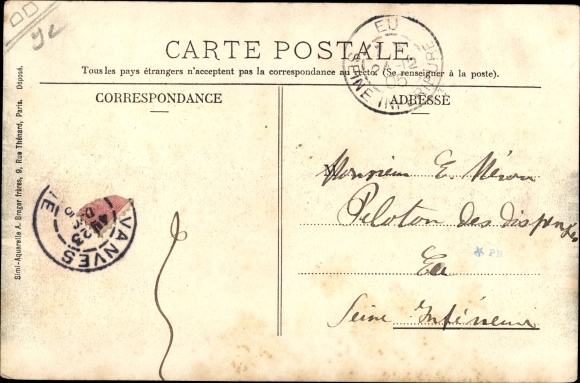 CARTE POSTALE
Tous les pays étrangers n'acceptent pas la correspondance au recto. (Se renseigner à la poste).
CORRESPONDANCE
ADRESSE
Monsieur E.
Peloton des dispensés
Eu
Seine Inférieure
EU
SEINE INFÉRIEURE
VANVES
23
PD
Simi-Aquarelle A. Breger frères, 9, Rue Thénard, Paris. Déposé.